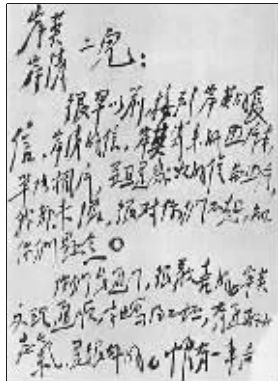 岸英
岸青 二兒：
很早以前，接到岸英的長
信，岸青的信，岸英寄來的照片本，
单張相片，並且是幾次的信与照片，
我都未復，很对你们不起，知
你们懸念。
你们長進了，很歡喜的。岸英
文理通順，字也寫得不坏，有進取的
志氣，是很好的。惟有一事向